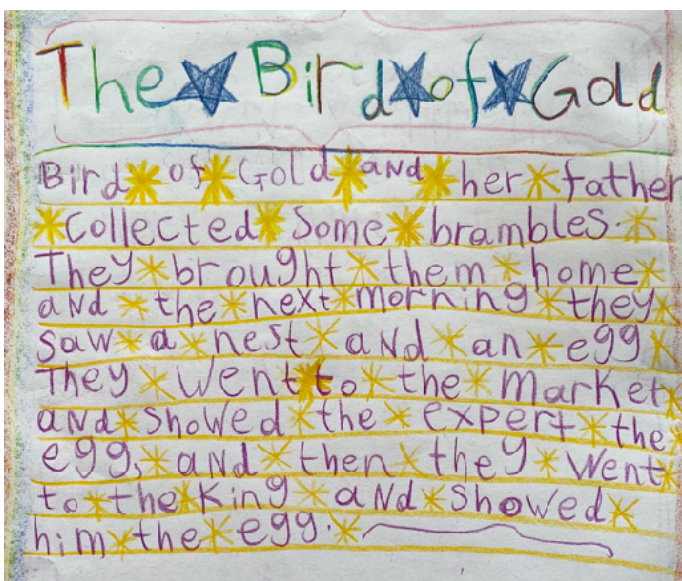 The Bird of Gold
Bird of Gold and her father
collected some brambles.
They brought them home
and the next morning they
saw a nest and an egg
They went to the market
and showed the expert the
egg, and then they went
to the King and showed
him the egg.